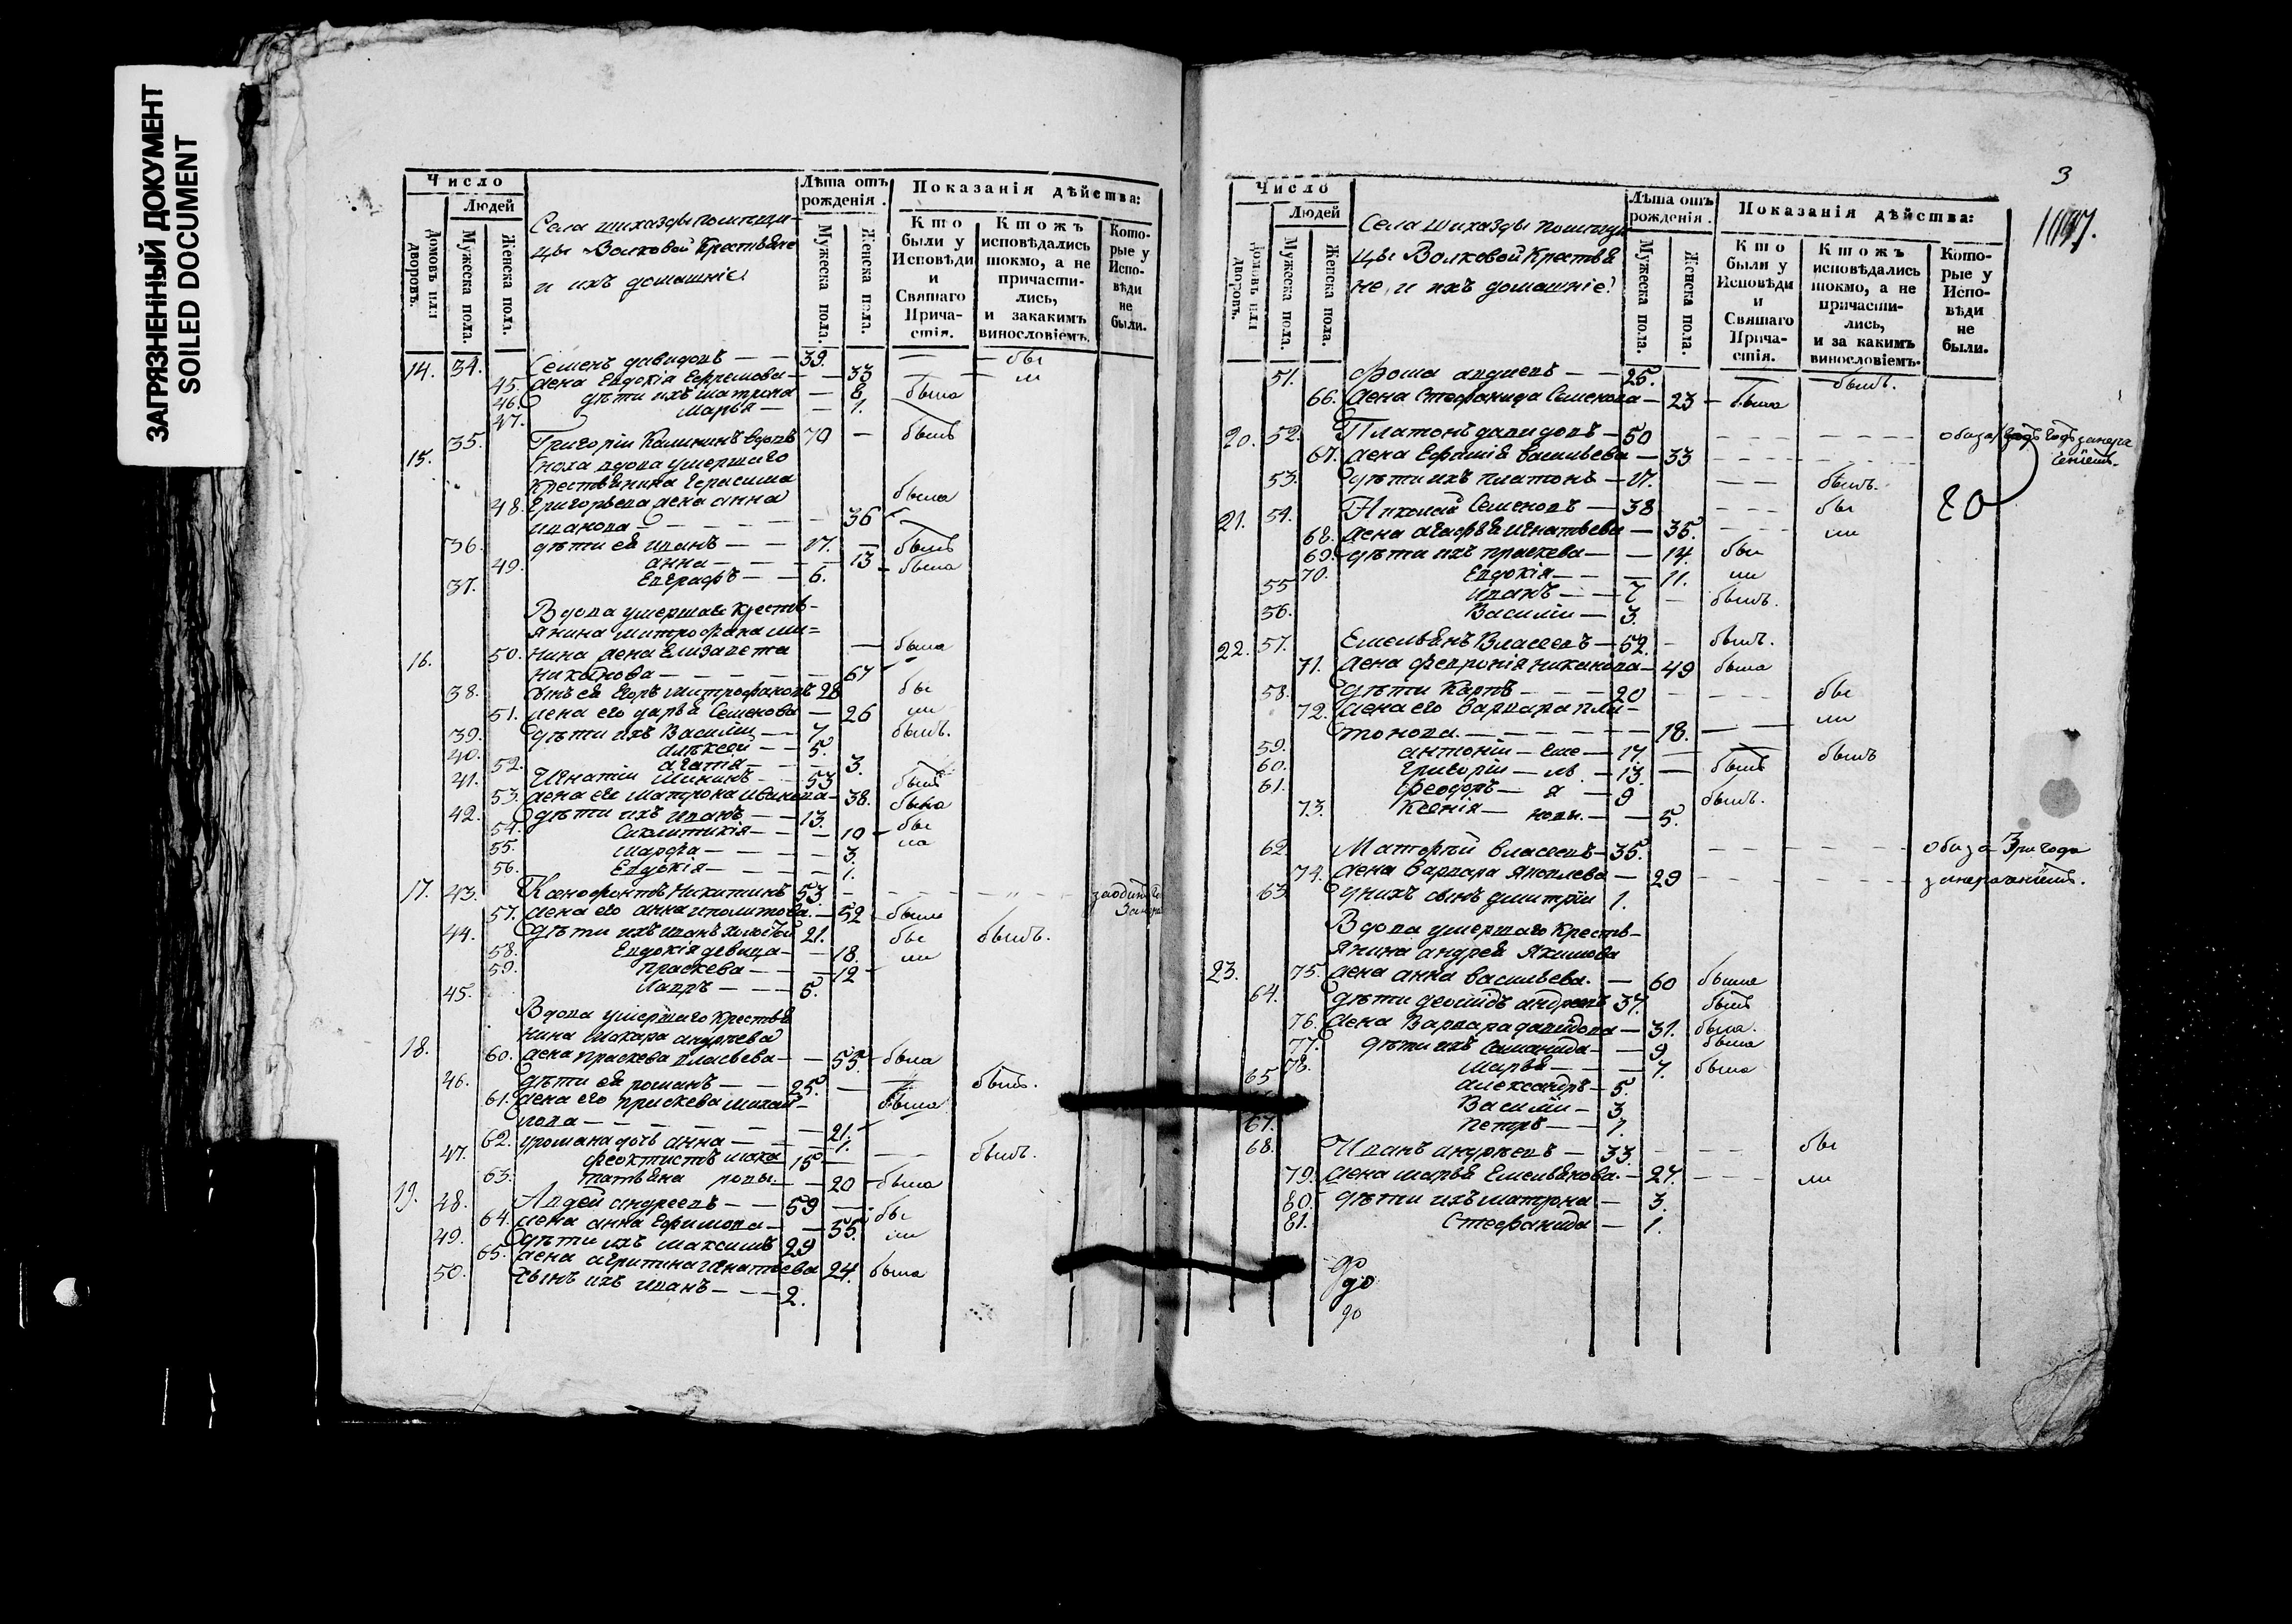 ЗАГРЯЗНЕННЫЙ ДОКУМЕНТ
SOILED DOCUMENT
Число
Людей
Домовъ или дворовъ.
Мужеска пола.
Женска пола.
Села Шихазды помещи-
цы Волковой крестьяне
и ихъ домашніе
Лѣта отъ рожденія.
Мужеска пола.
Женска пола.
Показанія дѣйства:
Кто были у Исповѣди и Святаго Причастія.
Ктожъ исповѣдались токмо, а не причастились, и закакимъ винословіемъ.
Которые у Исповѣди не были.
14. 34. Семенъ Давидовъ — — 39. — бы
45. жена Евдокія Ефремова — — 33 — ли
46. дѣти ихъ Матрона — 8. была
47. Марья — — 1.
15. 35. Григоріи Калининъ вдовъ 70 — былъ
Сноха вдова умершаго
крестьянина Герасима
48. Григорьева жена Анна была
Иванова — — — — 36
36. дѣти ея Иванъ — — 17. — былъ
49. Анна — — — — 13 — была
37. Евграфъ — — 6.
Вдова умершаго кресть-
янина Митрофана Ми-
16. 50. нина жена Елизавета — была
Никонова — — — — — 67
38. сынъ ея Егоръ Митрофановъ 28 бы
51. жена его Дарья Семенова — 26 ли
39. дѣти ихъ Василіи — — 7 былъ.
40. Алексей — — 5.
52. Агапія — — — 3.
41. Игнатіи Мининъ — — 53 былъ
53. жена его Матрона Иванова — 38. была
42. дѣти ихъ Иванъ — — 13.
54. Сиклитикія — — — 10 — бы
55. Марфа — — — — 3. ла
56. Евдокія — — — — 1.
17. 43. Ксенофонтъ Никитинъ 53. — — — — —
57. жена его Анна Иполитова. — 52 — была
44. дѣти ихъ Иванъ холостый 21. бы былъ.
58. Евдокія девица — — 18. ли
59. Праскева — — — 12
45. Лавръ — — — 5.
Вдова умершаго крестья
нина Макара Андреева
18. 60. жена Праскева Власьева — — 55. — была
46. дѣти ея Романъ — — 25. — былъ.
61. жена его Праскева Михай- была
лова — — — — — — 21.
62. у Романа дочь Анна — — — 1.
47. Феоктистъ мака 15 — — — былъ.
63. Татьяна ровы. — — 20 — была
19. 48. Авдей Андреевъ — — 59 — бы
64. жена Анна Ефимова — — 55. ли
49. дѣти ихъ Максимъ 29
65. жена Агрипина Игнатьева 24. была
50. сынъ ихъ Иванъ — — — 2.
3
Число
Людей
Домовъ или дворовъ.
Мужеска пола.
Женска пола.
Села Шихазды помещи
цы Волковой крестья
не, и ихъ домашніе
Лѣта отъ рожденія.
Мужеска пола.
Женска пола.
Показанія дѣйства:
Кто были у Исповѣди и Святаго Причастія.
Ктожъ исповѣдались токмо, а не причастились, и за какимъ винословіемъ.
Которые у Исповѣди не были.
51. Фома Авдеевъ — — 25. — былъ.
66. жена Стефанида Семенова — 23 — была
20. 52. Платонъ Давидовъ — 50 — — — — — — оба за
67. жена Ефимія Васильева — 33 — — — — — —
53. дѣти ихъ Платонъ — 17. — — былъ.
21. 54. Николай Семеновъ — 38 — — — бы
68. жена Агафья Игнатьева — 35. — — — ли
69. дѣти ихъ Праскева — — 14. бы
70. Евдокія — — — 11. ли
55 Иванъ — — 7 — былъ.
56. Василіи — 3.
22. 57. Емельянъ Власовъ — 52. — былъ.
71. жена Февронія Никонова — 49 была
58. дѣти Карпъ — — — 20 — — — бы
72. жена его Варвара Пла-
тонова. — — — — — 18. — — ли
59. Антоніи — Еме — 17 — былъ
60. Григоріи — ль — 13 — былъ
61. Феодоръ — я — 9 былъ.
73. Ксенія — новы. — — 5.
62. Матфей Власовъ — 35. — — — — — — оба за 3 ри года
74. жена Варвара Яковлева — 29 — — — — — —
63. у нихъ сынъ Дмитріи 1.
Вдова умершаго кресть-
янина Андрея Якимова
23. 75. жена Анна Васильева. — 60 была
64. дѣти Леонидъ Андреевъ 37. былъ
76. жена Варвара Давидова — 31. была.
77. дѣти ихъ Саманида — — 9. была
78. Марья — — — 7. была
65 Александръ — 5.
Василіи — 3.
67. Петръ — — 1.
68. Иванъ Андреевъ — 33. — — — бы
79. жена Марья Емельянова. — 27. — — — ли
80. дѣти ихъ Матрона — 3.
81. Стефанида — 1.